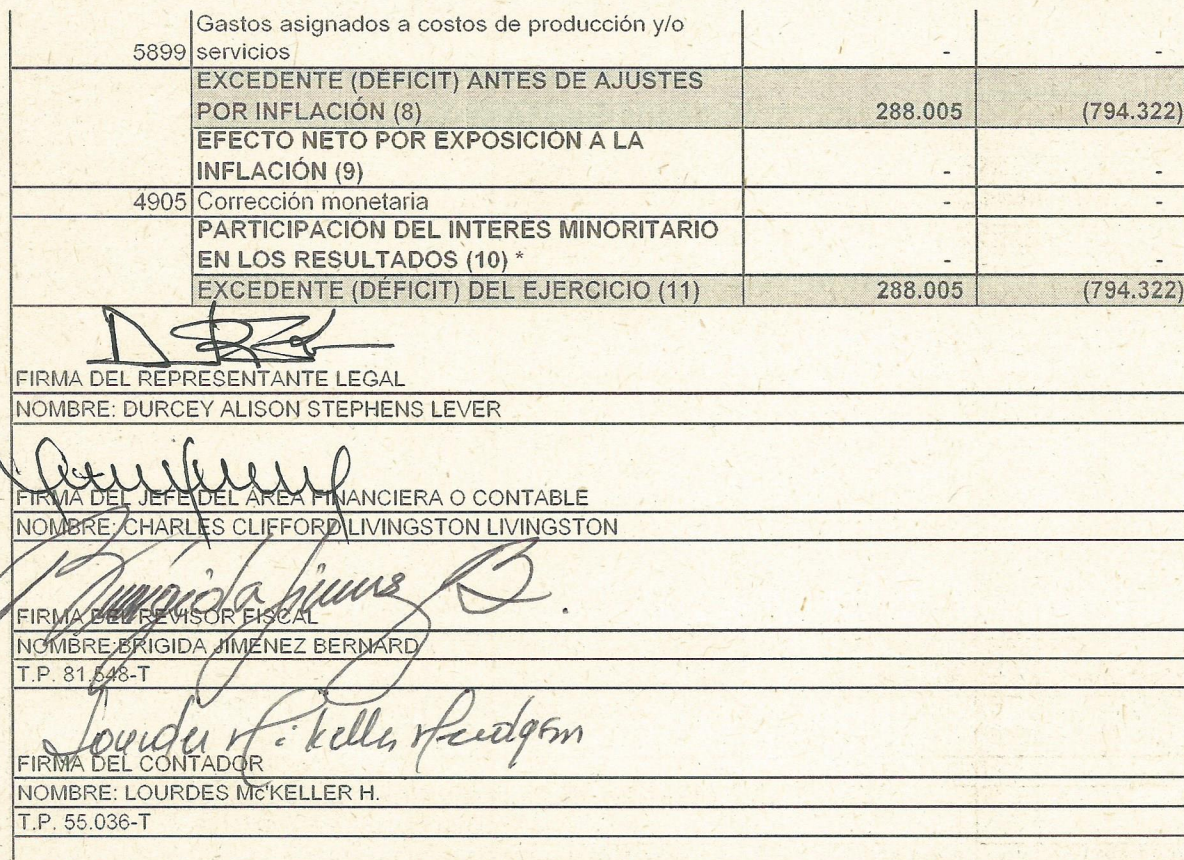 Gastos asignados a costos de producción y/o
5899 servicios - -
EXCEDENTE (DÉFICIT) ANTES DE AJUSTES
POR INFLACIÓN (8) 288.005 (794.322)
EFECTO NETO POR EXPOSICIÓN A LA
INFLACIÓN (9) - -
4905 Corrección monetaria - -
PARTICIPACIÓN DEL INTERÉS MINORITARIO
EN LOS RESULTADOS (10) * - -
EXCEDENTE (DÉFICIT) DEL EJERCICIO (11) 288.005 (794.322)
FIRMA DEL REPRESENTANTE LEGAL
NOMBRE: DURCEY ALISON STEPHENS LEVER
FIRMA DEL JEFE DEL ÁREA FINANCIERA O CONTABLE
NOMBRE: CHARLES CLIFFORD LIVINGSTON LIVINGSTON
Brigida Jimenez B.
FIRMA DEL REVISOR FISCAL
NOMBRE:BRIGIDA JIMENEZ BERNARD
T.P. 81.548-T
Lourdes
FIRMA DEL CONTADOR
NOMBRE: LOURDES Mc'KELLER H.
T.P. 55.036-T